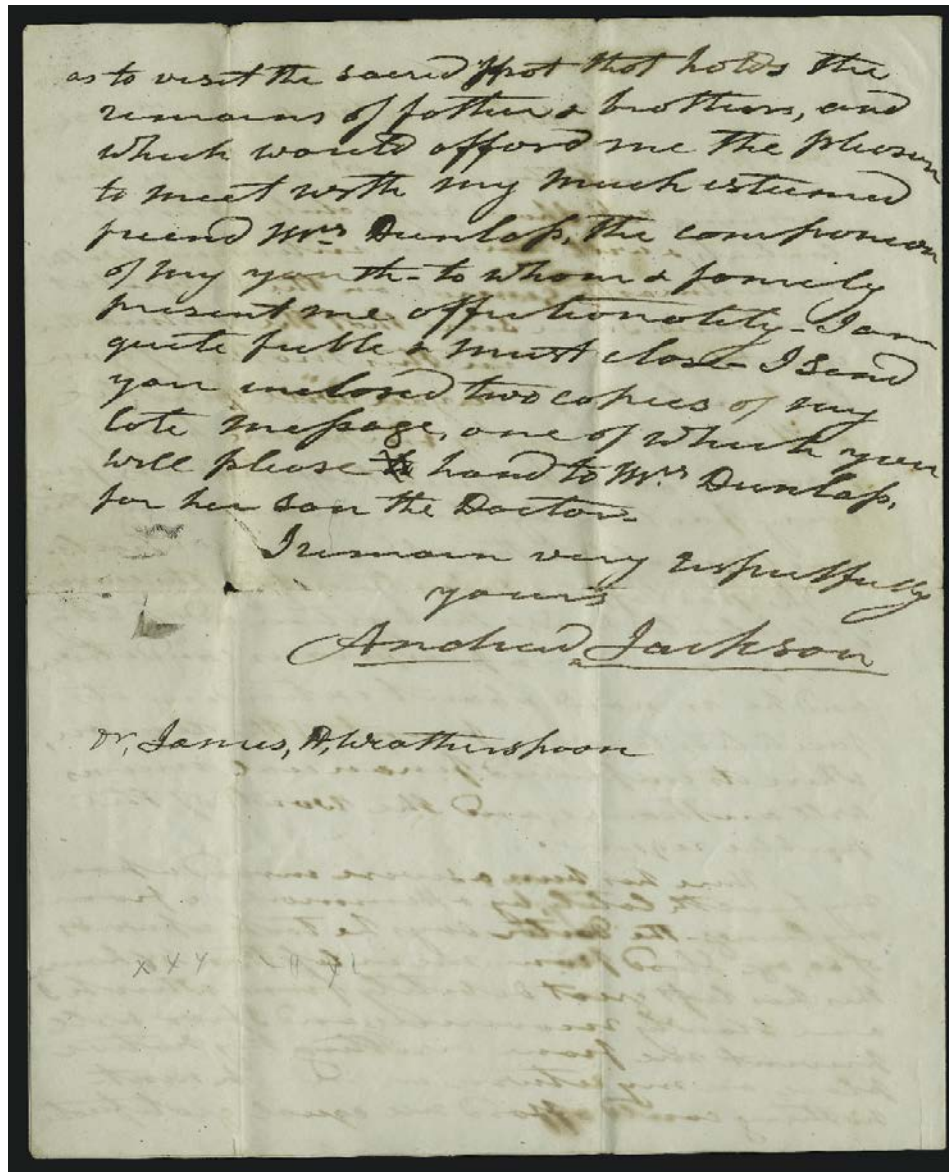 as to visit the sacred spot that holds the
remains of father & brothers, and
which would afford me the pleasure
to meet with my much esteemed
friend Mrs Dunlap, the companion
of my youth - to whom & family
present me affectionately - I am
quite feeble & must close - I send
you inclosed two copies of my
late message, one of which you
will please hand to Mrs Dunlap,
for her son the Doctor -
I remain very respectfully
yours
Andrew Jackson
Dr, James, A, Wratherspoon